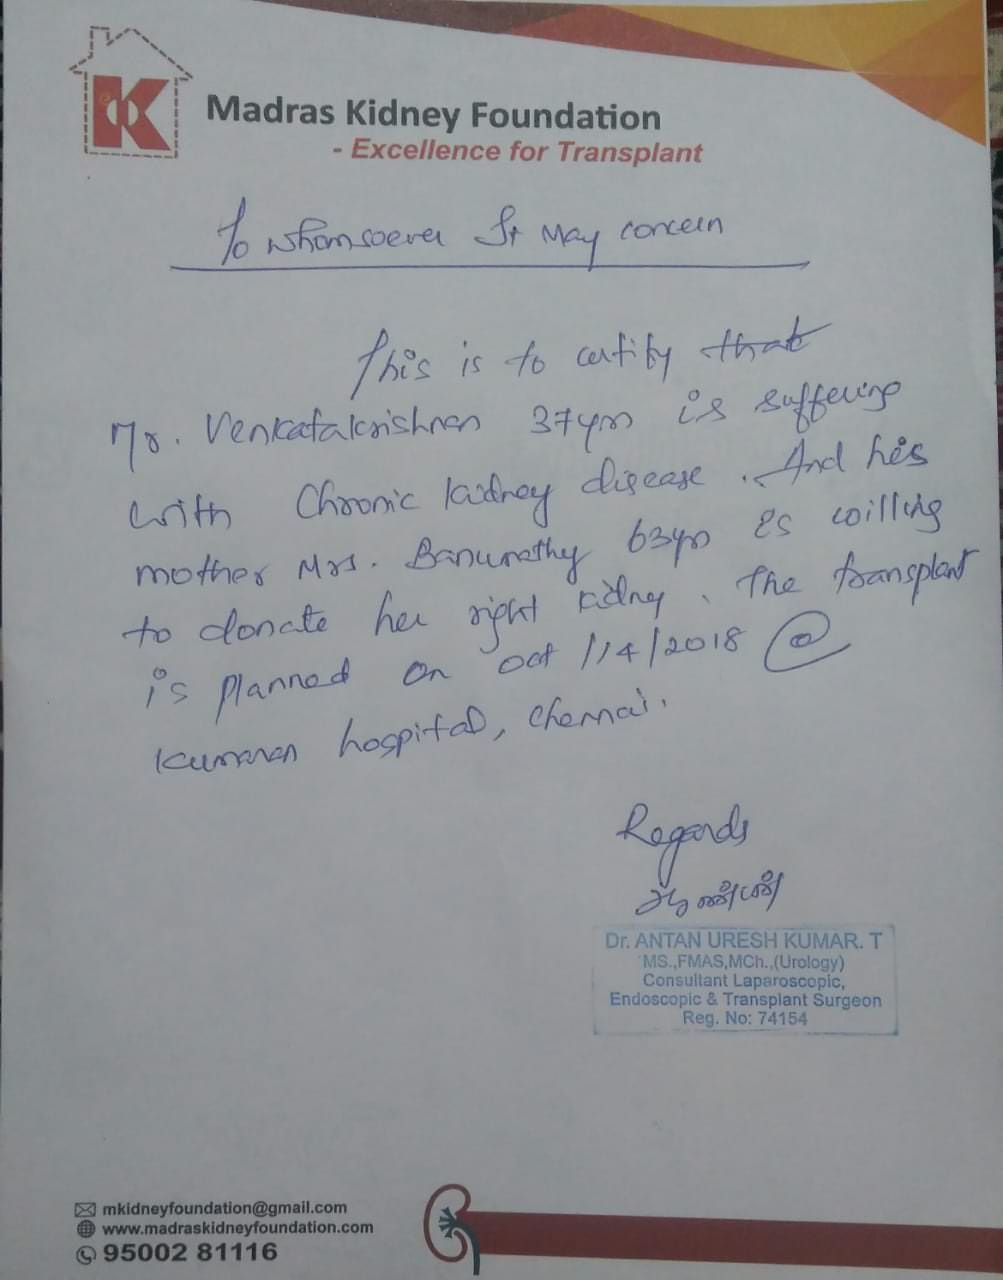 Madras Kidney Foundation
- Excellence for Transplant
To whomsoever It May concern
This is to certify that
Mr. Venkatakrishnan 37yrs is suffering
with Chronic kidney disease. And his
mother Mrs. Banumathy 63yrs is willing
to donate her right kidney. The transplant
is planned on Oct /14/2018 @
Kumaran hospital, Chennai.
Regards
Dr. ANTAN URESH KUMAR. T
MS.,FMAS,MCh.,(Urology)
Consultant Laparoscopic,
Endoscopic & Transplant Surgeon
Reg. No: 74154
mkidneyfoundation@gmail.com
www.madraskidneyfoundation.com
95002 81116